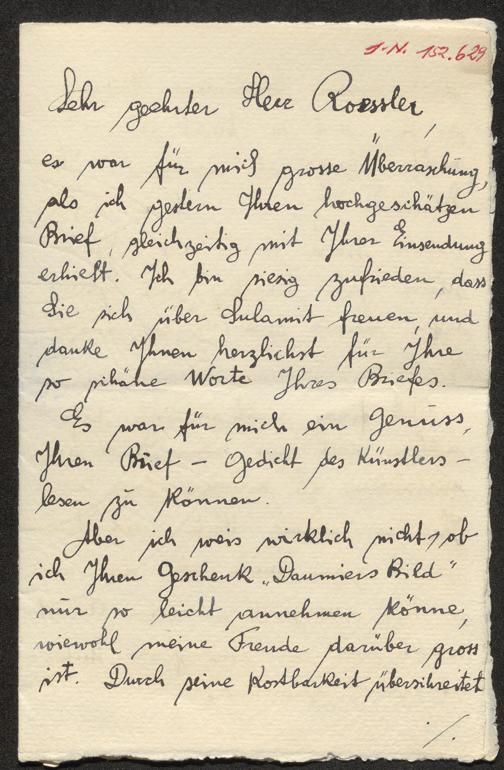 J.N. 152.629
Sehr geehrter Herr Roessler,
es war für mich grosse Überraschung,
als ich gestern Ihren hochgeschätzen
Brief, gleichzeitig mit Ihrer Einsendung
erhielt. Ich bin riesig zufrieden, dass
Sie sich über Sulamit freuen, und
danke Ihnen herzlichst für Ihre
so schöne Worte Ihres Briefes.
Es war für mich ein Genuss,
Ihren Brief – Gedicht des Künstlers –
lesen zu können.
Aber ich weis wirklich nicht, ob
ich Ihren Geschenk „Daumiers Bild"
nur so leicht annehmen könne,
wiewohl meine Freude darüber gross
ist. Durch seine Kostbarkeit überschreitet
./.